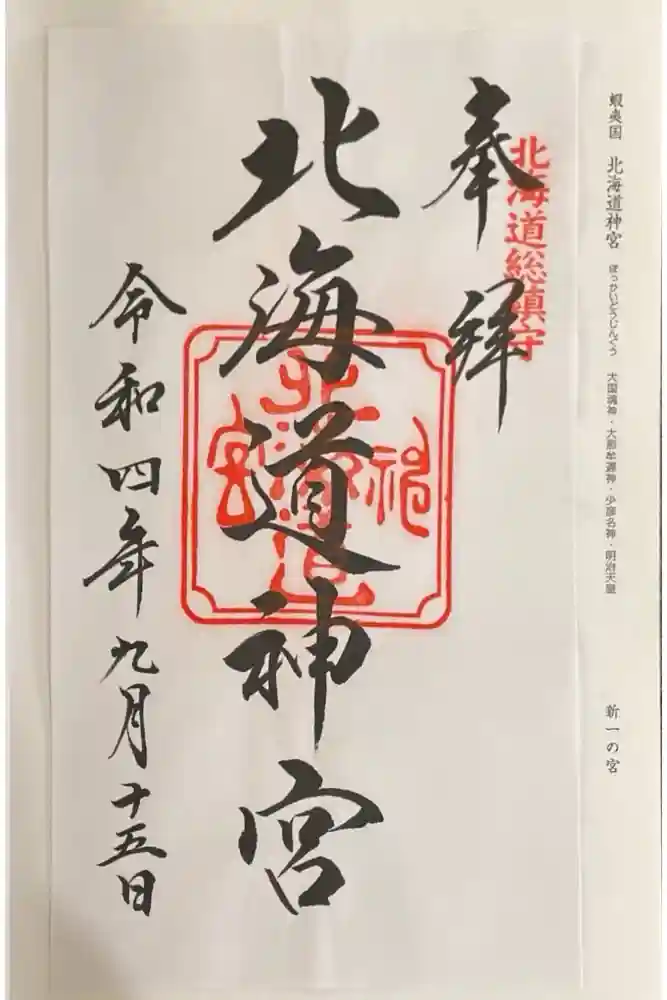 蝦夷国 北海道神宮 ほっかいどうじんぐう 大国魂神・大那牟遅神・少彦名神・明治天皇 新一の宮
北海道総鎮守
奉拝
北海道神宮
令和四年九月十五日